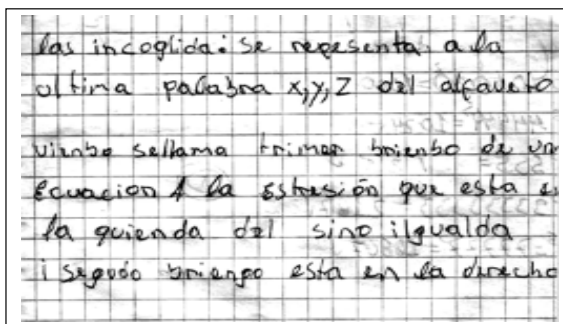 las incoglida: se repesenta a la
ultima palabra x,y,z del alfaveto
vienbo sellama trimer brienbo de un
ecuacion A la estresión que esta e
la quienda del sino ilgualda
i segudo briengo esta en la derecho